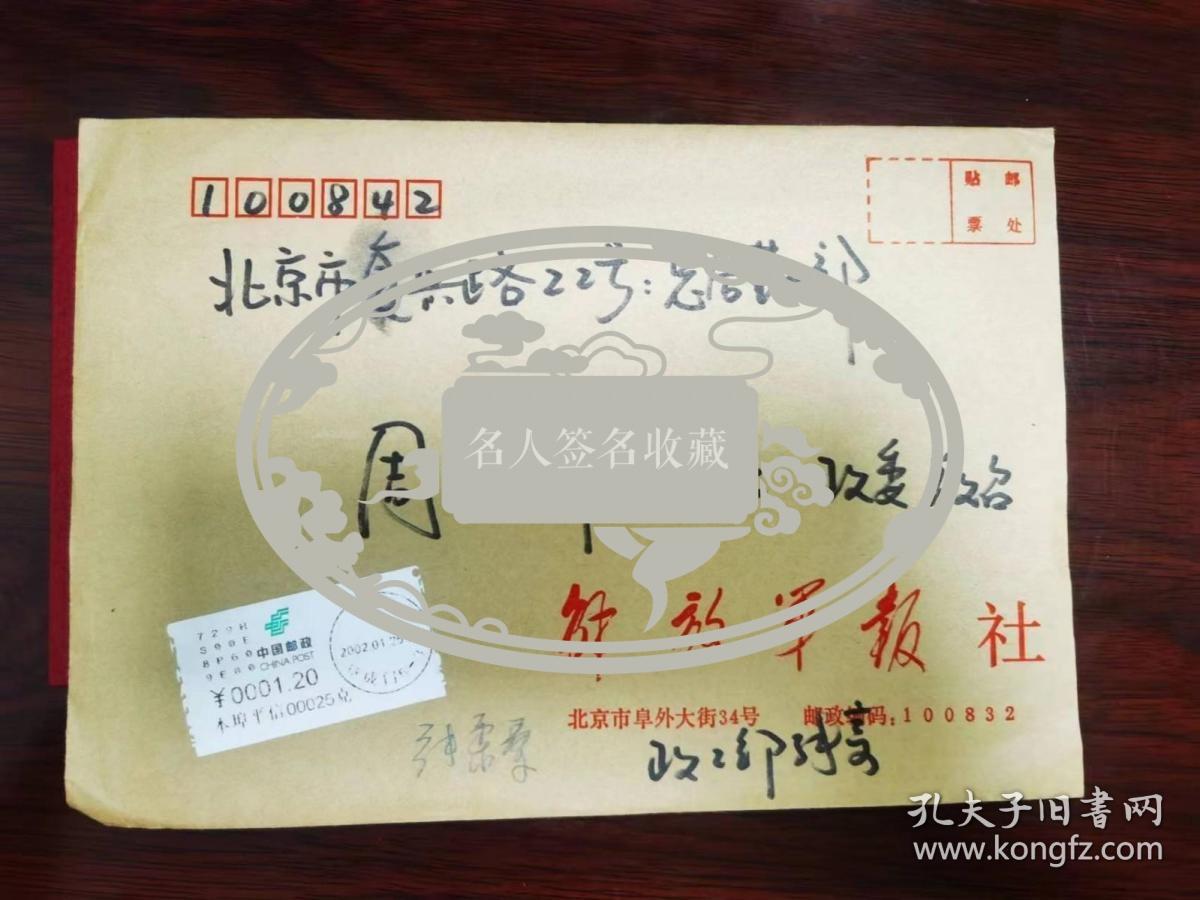 100842
贴邮
票处
北京市复兴路22号:总后勤部
名人签名收藏
周
政委 收启
解放军报社
北京市阜外大街34号 邮政编码:100832
政工部
729H
S00E
8P60
9E80
中国邮政
CHINA POST
¥0001.20
本埠平信00025克
孔夫子旧書网
www.kongfz.com